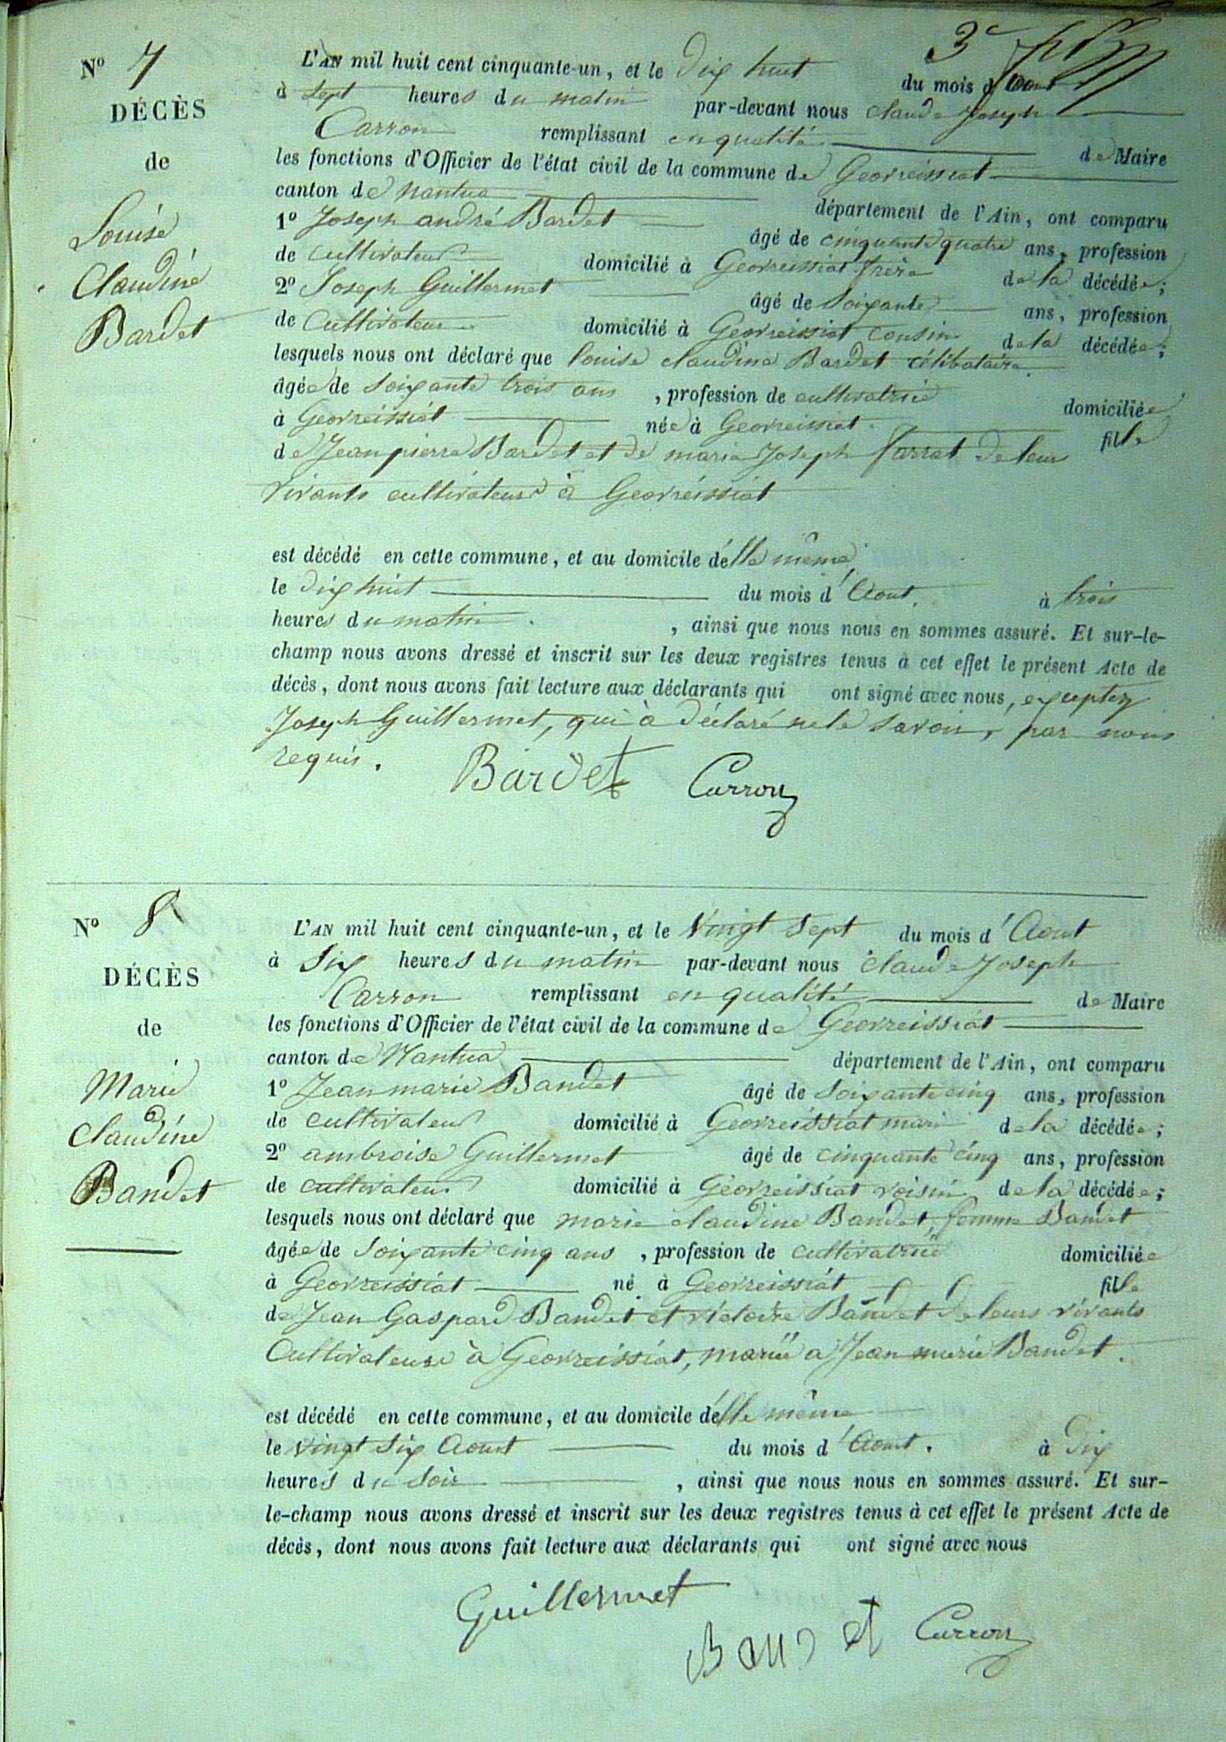 3e
Nº 7
DÉCÈS
de
Louise
Claudine
Bardet
L'AN mil huit cent cinquante-un, et le dix huit du mois d'Aout
à sept heures du matin par-devant nous Claude Joseph
Carron remplissant en qualité de Maire
les fonctions d'Officier de l'état civil de la commune de Geovreissiat
canton de nantua département de l'Ain, ont comparu
1º Joseph andré Bardet âgé de cinquante quatre ans, profession
de cultivateur domicilié à Geovreissiat frère de la décédée;
2º Joseph Guillermet âgé de soixante ans, profession
de Cultivateur domicilié à Geovreissiat cousin de la décédée;
lesquels nous ont déclaré que louise claudine Bardet célibataire
âgée de soixante trois ans, profession de cultivatrice domiciliée
à Geovreissiat née à Geovreissiat fille
de Jean pierre Bardet et de marie Joseph farrat de leur
vivants cultivateurs à Geovreissiat
est décédé en cette commune, et au domicile d'elle même
le dix huit du mois d'Aout, à trois
heures du matin, ainsi que nous nous en sommes assuré. Et sur-le-
champ nous avons dressé et inscrit sur les deux registres tenus à cet effet le présent Acte de
décès, dont nous avons fait lecture aux déclarants qui ont signé avec nous, excepter
Joseph Guillermet, qui à déclaré ne le savoir, par nous
requis.
Bardet Carron
Nº 8
DÉCÈS
de
Marie
Claudine
Bandet
L'AN mil huit cent cinquante-un, et le Vingt sept du mois d'Aout
à six heures du matin par-devant nous Claude Joseph
Carron remplissant en qualité de Maire
les fonctions d'Officier de l'état civil de la commune de Geovreissiat
canton de Nantua département de l'Ain, ont comparu
1º Jean marie Bandet âgé de soixante cinq ans, profession
de cultivateur domicilié à Geovreissiat mari de la décédée;
2º ambroise Guillermet âgé de cinquante cinq ans, profession
de cultivateur domicilié à Geovreissiat voisin de la décédée;
lesquels nous ont déclaré que marie claudine Bandet, femme Bandet
âgée de soixante cinq ans, profession de cultivatrice domiciliée
à Geovreissiat né à Geovreissiat fille
de Jean Gaspard Bandet et victoire Bandet de leurs vivants
Cultivateurs à Geovreissiat, mariée a Jean marie Bandet.
est décédé en cette commune, et au domicile d'elle même
le vingt six Aoust du mois d'Aout. à dix
heures du soir, ainsi que nous nous en sommes assuré. Et sur-
le-champ nous avons dressé et inscrit sur les deux registres tenus à cet effet le présent Acte de
décès, dont nous avons fait lecture aux déclarants qui ont signé avec nous
Guillermet
Bandet Carron